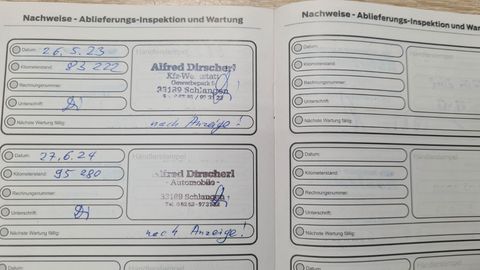 Nachweise - Ablieferungs-Inspektion und Wartung
Datum: 26.5.23
Kilometerstand: 83 222
Rechnungsnummer:
Unterschrift:
Nächste Wartung fällig: nach Anzeige!
Händlerstempel
Alfred Dirscherl
Gewerbepark
33189 Schlangen
Datum: 27.6.24
Kilometerstand: 95 280
Rechnungsnummer:
Unterschrift:
Nächste Wartung fällig: nach Anzeige!
Händlerstempel
Alfred Dirscherl
- Automobile -
33189 Schlangen
Nachweise - Ablieferungs-Inspektion und War
Datum:
Kilometerstand:
Rechnungsnummer:
Unterschrift:
Nächste Wartung fällig:
Datum:
Kilometerstand:
Rechnungsnummer:
Unterschrift:
Nächste Wartung fällig: